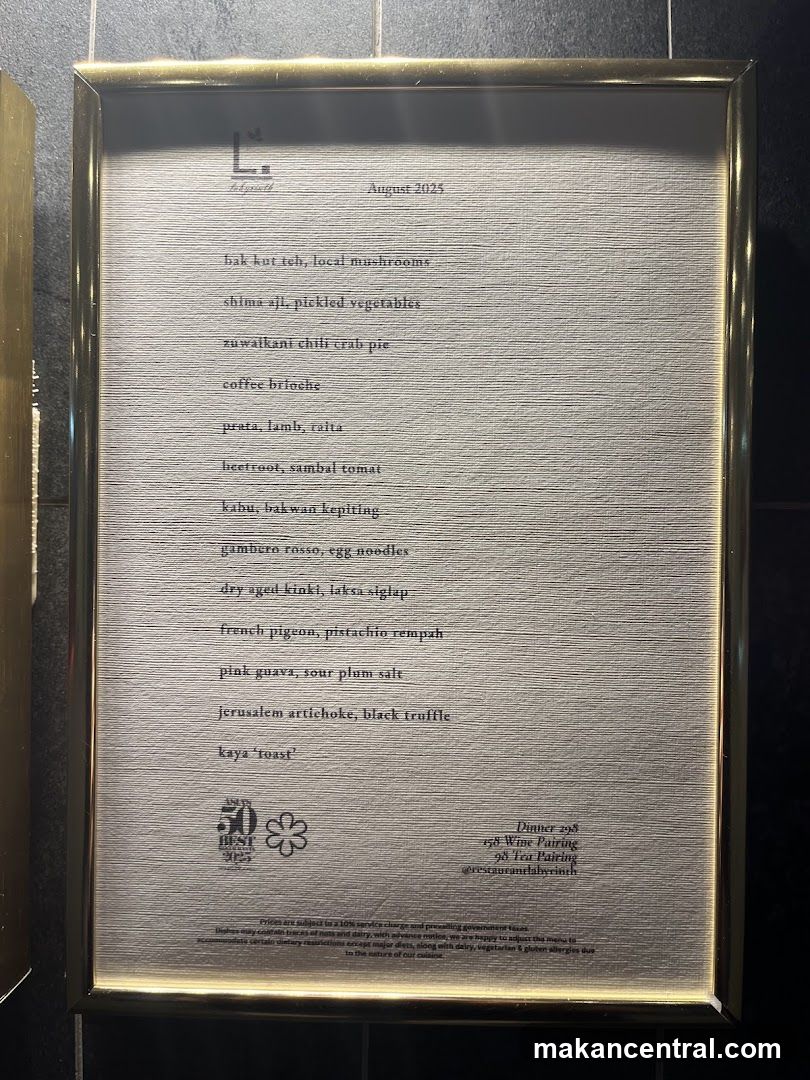 L.
labyrinth
August 2025
bak kut teh, local mushrooms
shima aji, pickled vegetables
zuwaikani chili crab pie
coffee brioche
prata, lamb, raita
beetroot, sambal tomat
kabu, bakwan kepiting
gambero rosso, egg noodles
dry aged kinki, laksa siglap
french pigeon, pistachio rempah
pink guava, sour plum salt
jerusalem artichoke, black truffle
kaya ‘toast’
ASIA'S
50
BEST
2025
Dinner 298
158 Wine Pairing
98 Tea Pairing
@restaurantlabyrinth
Prices are subject to a 10% service charge and prevailing government taxes
Dishes may contain traces of nuts and dairy, with advance notice, we are happy to adjust the menu to
accommodate certain dietary restrictions except major diets, along with dairy, vegetarian & gluten allergies due
to the nature of our cuisine.
makancentral.com